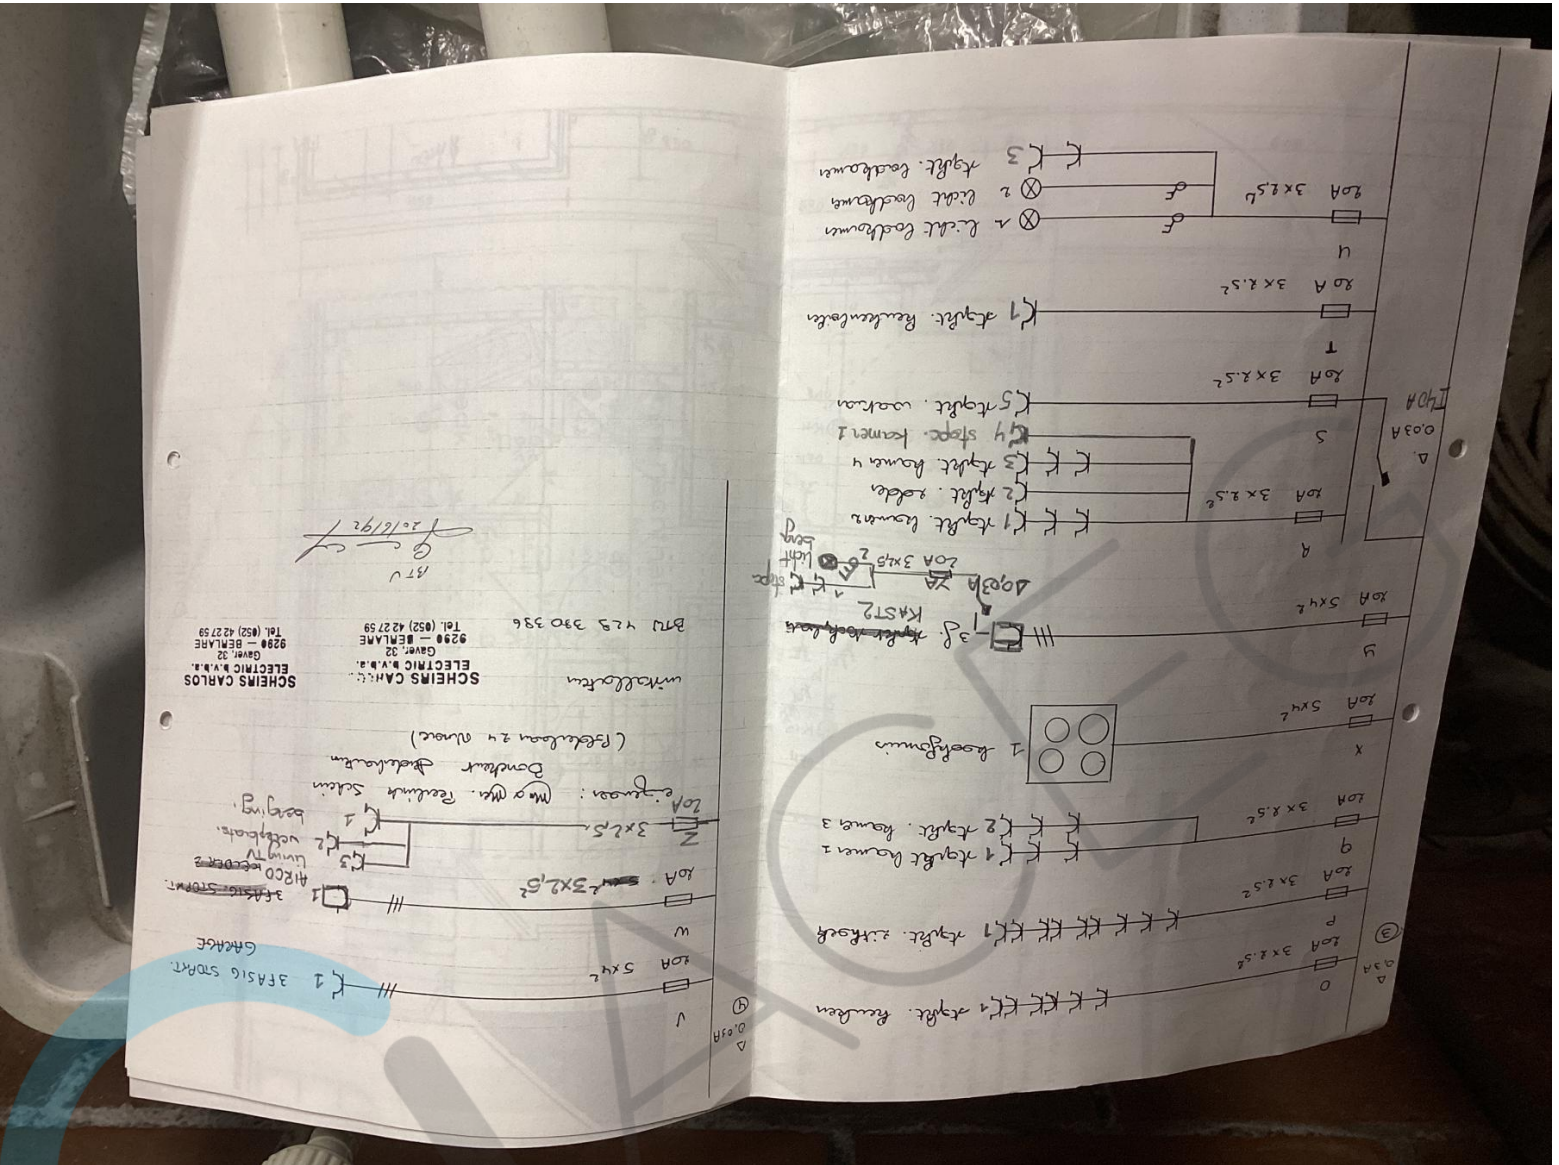 Δ
0,3A
③
O
20A 3x2.5²
1 stpkt. keuken
P
20A 3x2.5²
1 stpkt. zithoek
q
20A 3x2.5²
1 stpkt kamer 1
2 stpkt. kamer 3
X
20A 5x4²
1 kookfornuis
y
20A 5x4²
3f.
KAST2
Δ0,03A
20A 3x2,5²
1 stopc
2 licht
berg
R
20A 3x2.5²
1 stpkt. kamer2
2 stpkt. zolder
3 stpkt. kamer 4
4 stopc. kamer 1
Δ.
0,03A
I40A
S
20A 3x2.5²
5 stpkt.
T
20A 3x2.5²
1 stpkt. keukenboiler
U
20A 3x2.5²
1 licht badkamer
2 licht badkamer
3 stpkt. badkamer
Δ
0,03A
④
V
20A 5x4²
1 3FASIG STOPKT.
GARAGE
W
20A 3x2,5²
1 3FASIG. STOPKT.
AIRCO
Z
20A 3x2,5
3 LIVING TV
2
1 berging.
eigenaar:
installateur
BTW 429 390 396
SCHEIRS CARLOS
ELECTRIC b.v.b.a.
Gaver, 32
9290 — BERLARE
Tel. (052) 42 27 59
SCHEIRS CARLOS
ELECTRIC b.v.b.a.
Gaver, 32
9290 — BERLARE
Tel. (052) 42 27 59
20/6/92